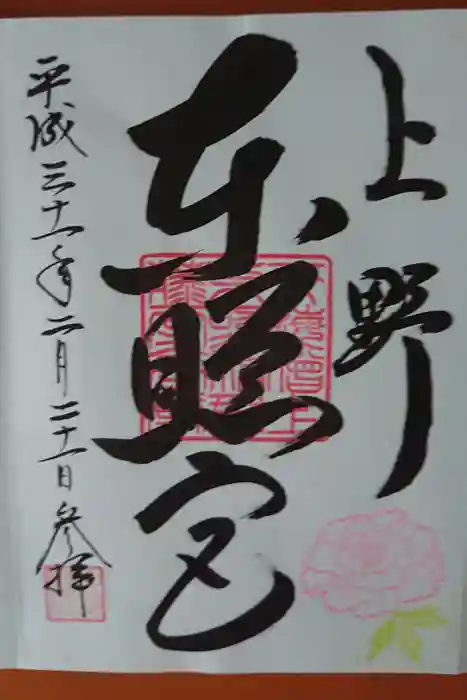 上野
東照宮
平成三十一年二月二十一日参拝